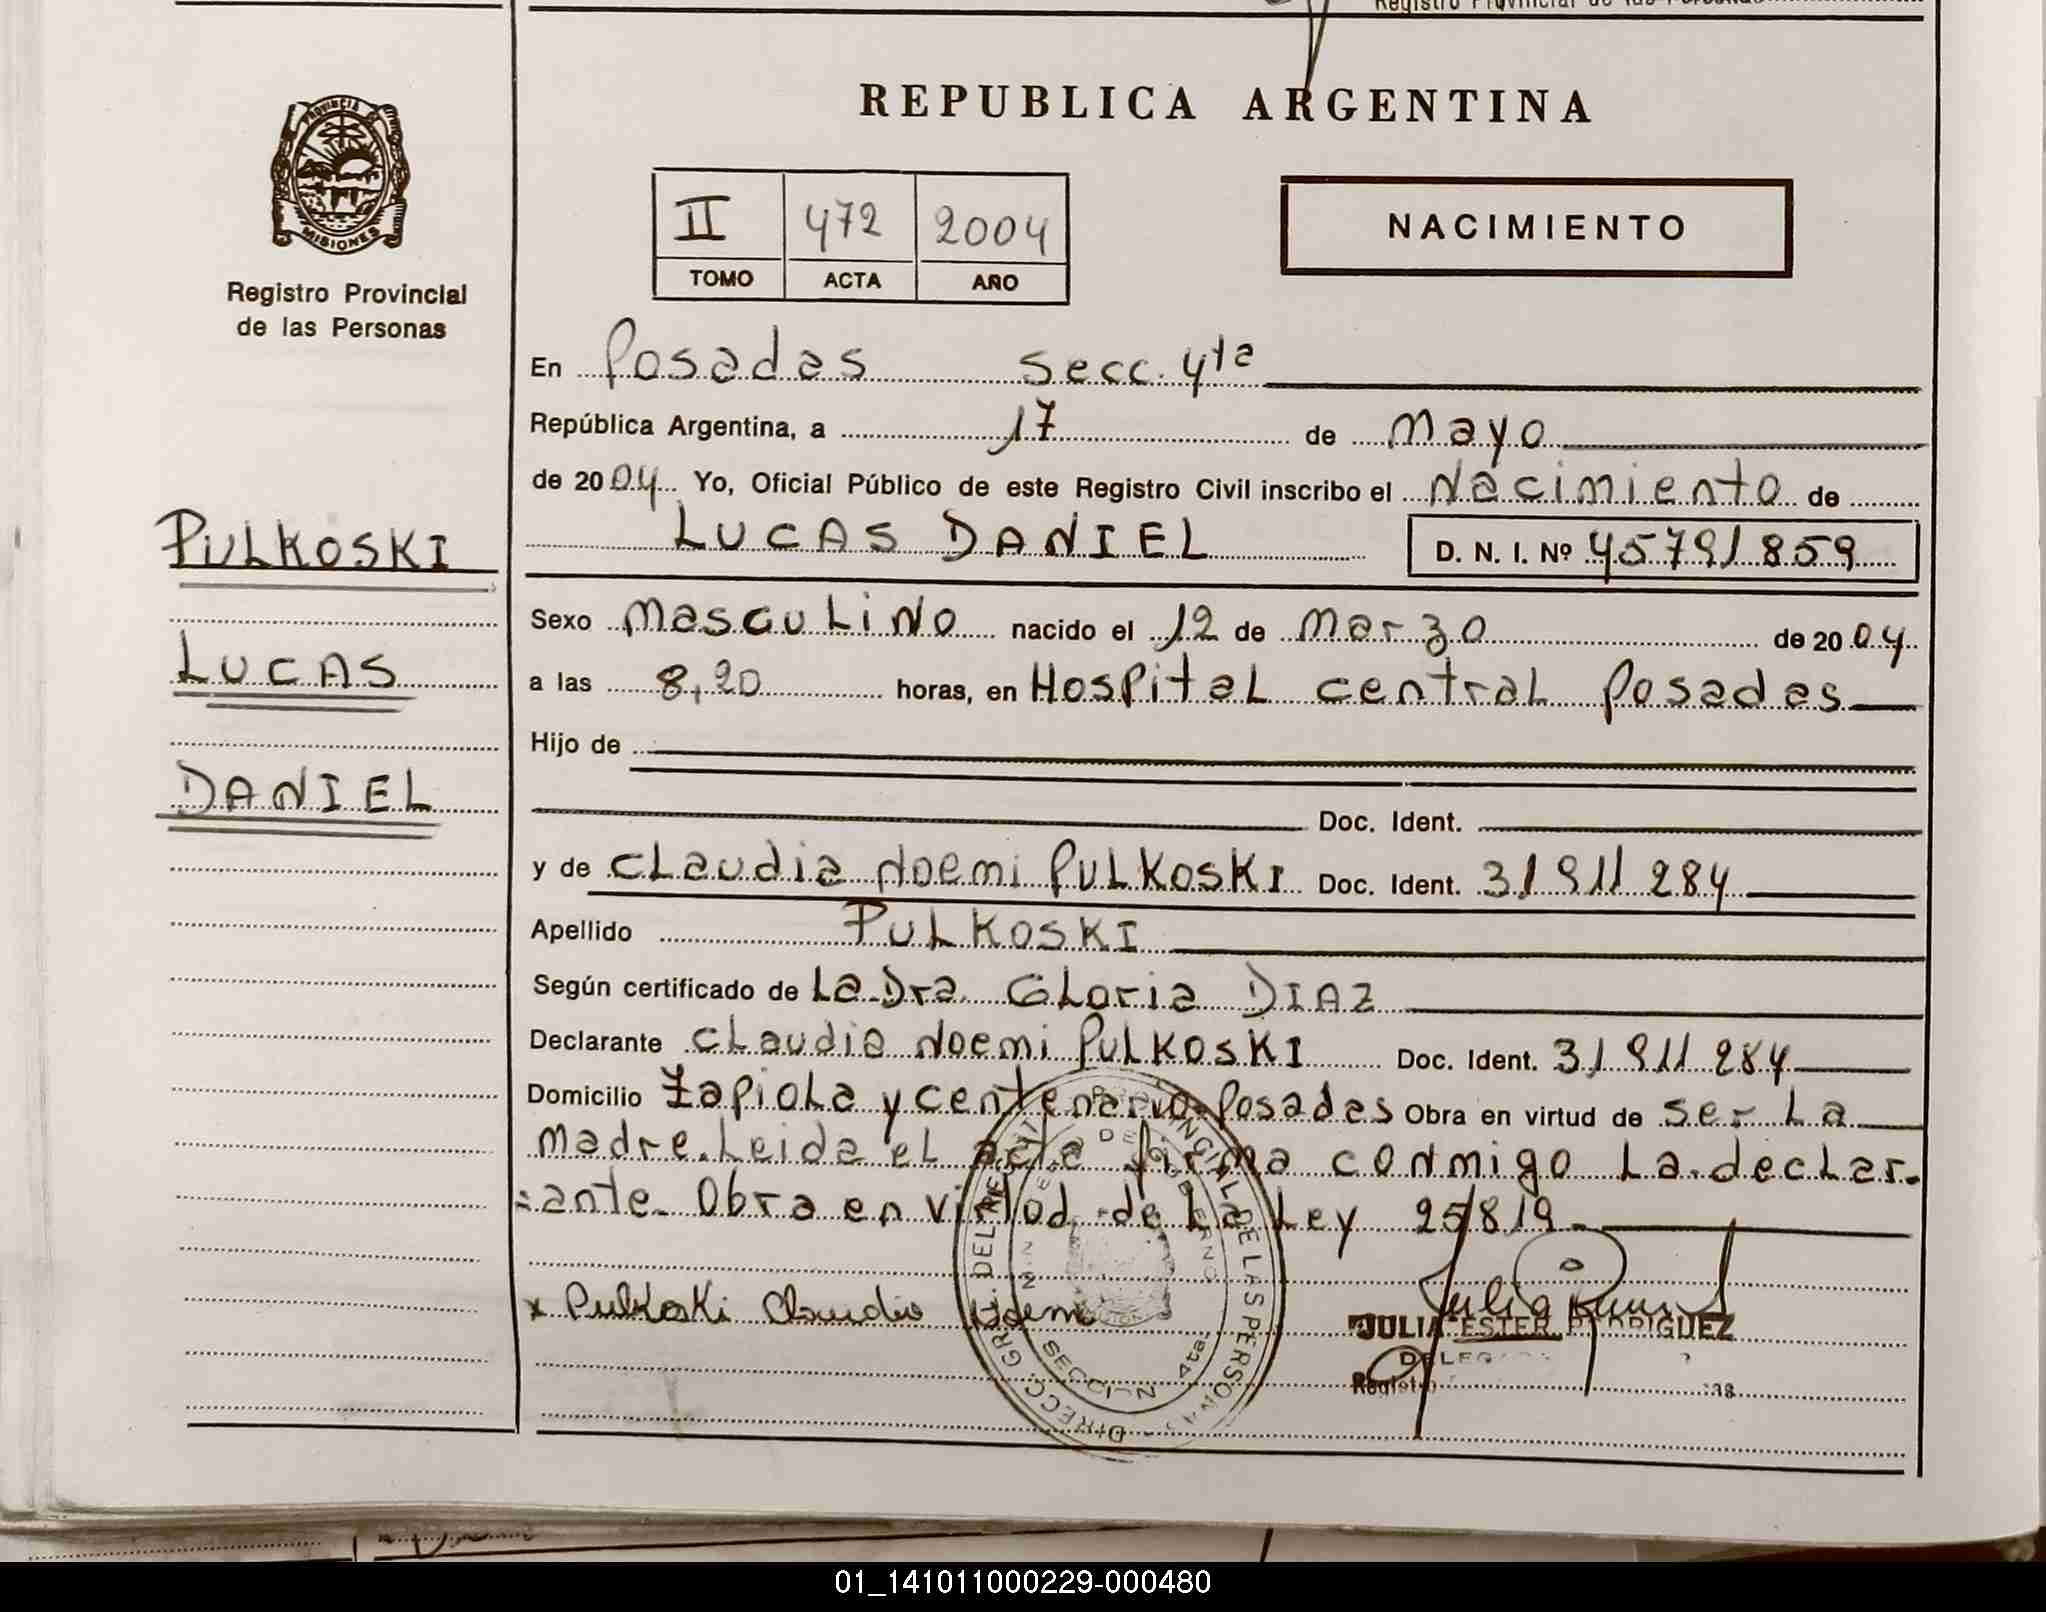 Registro Provincial de las Personas
REPUBLICA ARGENTINA
PROVINCIA DE
MISIONES
Registro Provincial
de las Personas
II 472 2004
TOMO ACTA AÑO
NACIMIENTO
PULKOSKI
LUCAS
DANIEL
En Posadas Secc. 4ta
República Argentina, a 17 de Mayo
de 2004 Yo, Oficial Público de este Registro Civil inscribo el Nacimiento de
LUCAS DANIEL D. N. I. Nº 45791859
Sexo Masculino nacido el 12 de Marzo de 2004
a las 8,20 horas, en Hospital central Posadas
Hijo de
Doc. Ident.
y de Claudia Noemi PULKOSKI Doc. Ident. 31911284
Apellido PULKOSKI
Según certificado de La Dra. Gloria DIAZ
Declarante Claudia Noemi PULKOSKI Doc. Ident. 31911284
Domicilio Zapiola y centenario Posadas Obra en virtud de ser La
madre. Leida el acta firma conmigo La declar-
=ante. Obra en virtud de La Ley 25819.
x Pulkoski Claudia Noemi
JULIA ESTER RODRIGUEZ
DIRECC. GRAL. DEL REGISTRO PROVINCIAL DE LAS PERSONAS
SECCION 4ta
01_141011000229-000480